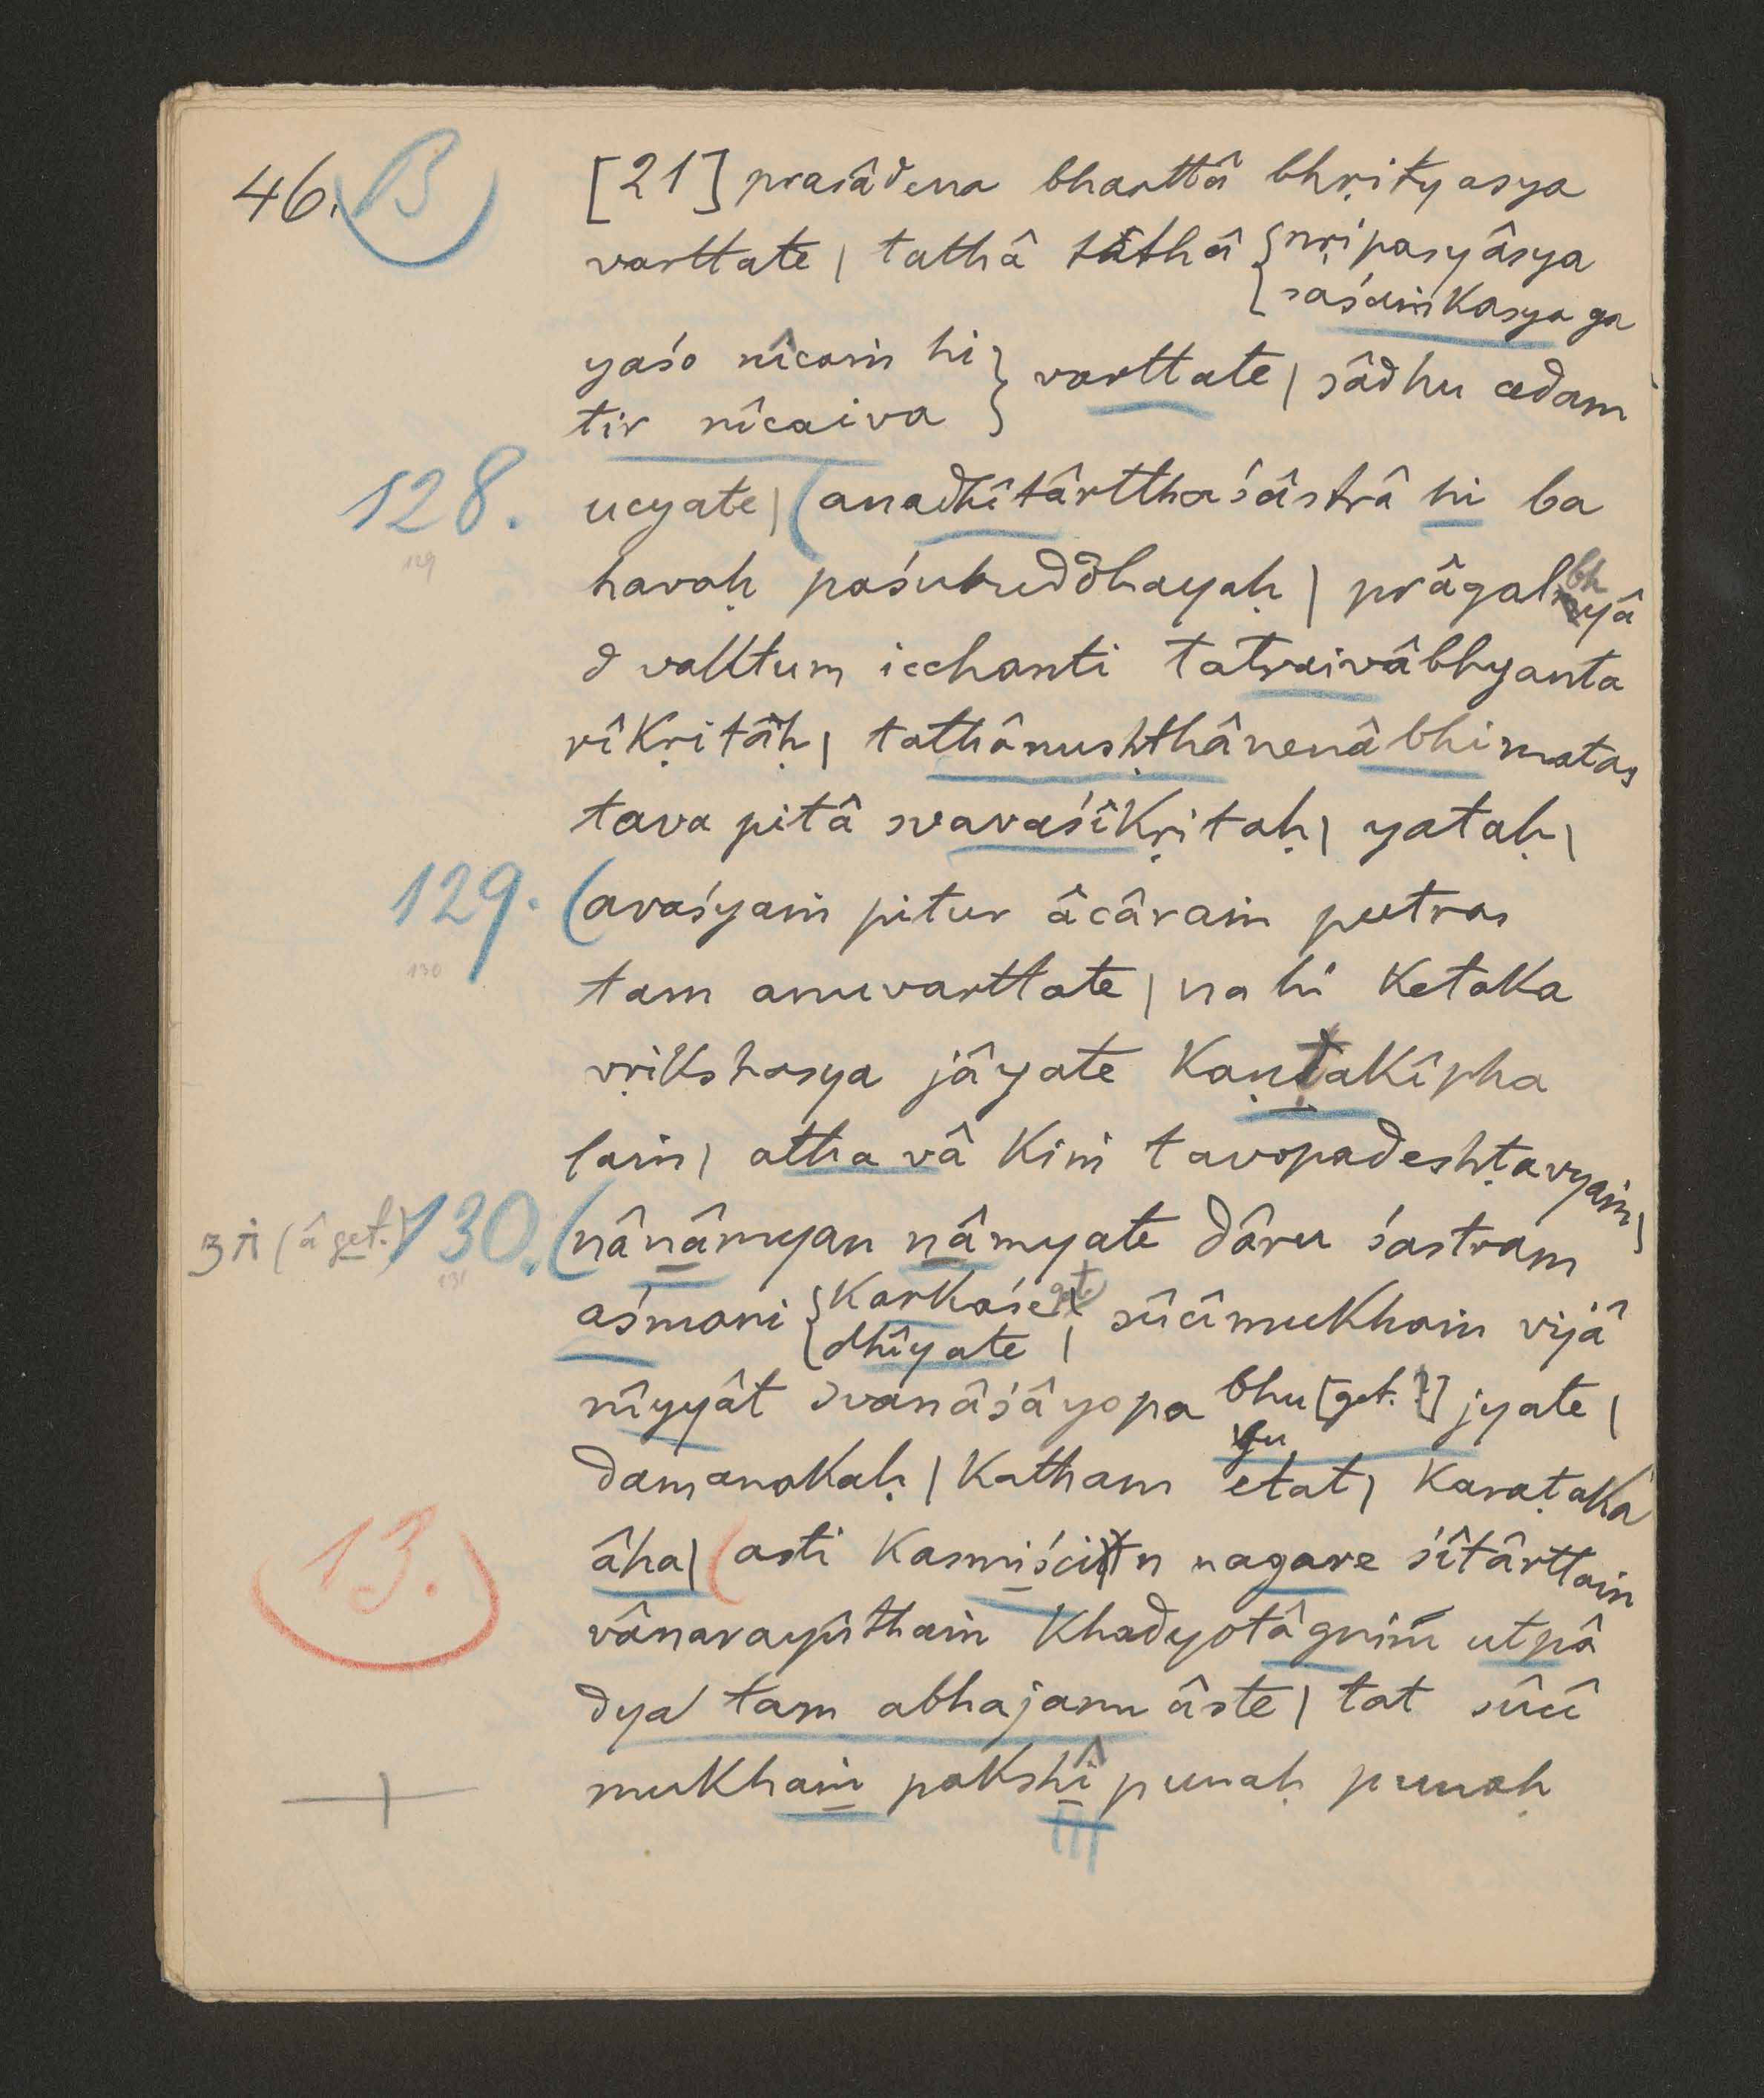 46. B [21] prasâdena bharttâ bhṛityasya
varttate | tathâ tathâ { nṛipasyâsya
{ saśaṁkasya ga
yaśo nîcaṁ hi } varttate | sâdhu cedam
tir nîcaiva }
128. ucyate | ( anadhîtârtthaśâstrâ hi ba
129
havaḥ paśubuddhayaḥ | prâgalbhyâ
d vaktum icchanti tatraivâbhyanta
rîkṛitâḥ | tathânushṭhânenâbhimatas
tava pitâ svavaśîkṛitaḥ | yataḥ |
129. ( avaśyaṁ pitur âcâraṁ putras
130
tam anuvarttate | na hi ketaka
vṛikshasya jâyate kaṇṭakîpha
laṁ | atha vâ kiṁ tavopadeshṭavyaṁ |
3 A (â get.) 130. ( nânâmyan nâmyate dâru śastram
131
aśmani { karkaśe
{ dhîyate | sûcîmukhaṁ vijâ
nîyyât svanâśâyopa bhu [get.?] jyate |
damanakaḥ | katham etat | karaṭaka
13. âha | ( asti kasmiścitn nagare śîtârttaṁ
vânarayûthaṁ khadyotâgniṁ utpâ
dya tam abhajann âste | tat sûcî
mukhaṁ pakshî punaḥ punaḥ